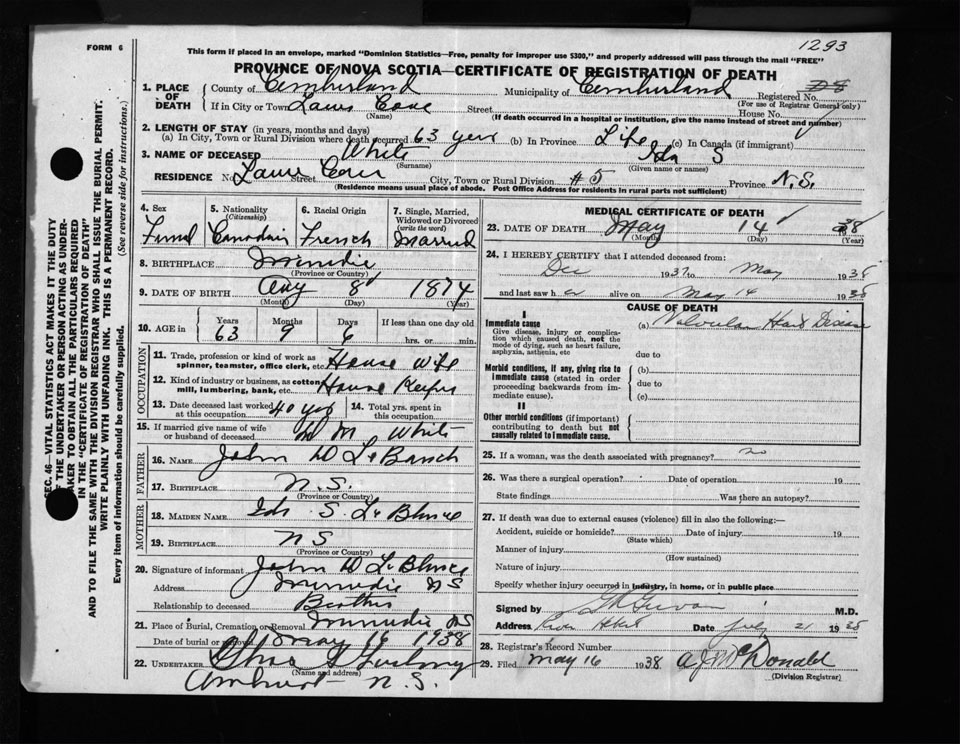 1293
FORM 6
This form if placed in an envelope, marked "Dominion Statistics—Free, penalty for improper use $300," and properly addressed will pass through the mail "FREE"
PROVINCE OF NOVA SCOTIA—CERTIFICATE OF REGISTRATION OF DEATH
1. PLACE OF DEATH
County of Cumberland Municipality of Cumberland Registered No.
(For use of Registrar General only)
If in City or Town Laws Cove Street House No.
(Name) (If death occurred in a hospital or institution, give the name instead of street and number)
2. LENGTH OF STAY (in years, months and days)
(a) In City, Town or Rural Division where death occurred 63 year (b) In Province Life (c) In Canada (if immigrant)
3. NAME OF DECEASED White Ida S
(Surname) (Given name or names)
RESIDENCE No. Street City, Town or Rural Division #5 Province N.S.
(Residence means usual place of abode. Post Office Address for residents in rural parts not sufficient)
4. Sex Femal
5. Nationality (Citizenship) Canadain
6. Racial Origin French
7. Single, Married, Widowed or Divorced (write the word) Married
8. BIRTHPLACE Minudie
(Province or Country)
9. DATE OF BIRTH Aug 8 1874
(Month) (Day) (Year)
10. AGE in Years Months Days If less than one day old
63 9 6 hrs. or min.
OCCUPATION
11. Trade, profession or kind of work as spinner, teamster, office clerk, etc. House Wife
12. Kind of industry or business, as cotton mill, lumbering, bank, etc. House Keeper
13. Date deceased last worked at this occupation 40 yrs
14. Total yrs. spent in this occupation
15. If married give name of wife or husband of deceased M White
FATHER
16. NAME John W LeBlanch
17. BIRTHPLACE N.S.
(Province or Country)
MOTHER
18. MAIDEN NAME Ida S. LeBlance
19. BIRTHPLACE N S
(Province or Country)
20. Signature of informant John W LeBlance
Address Minudie N S
Relationship to deceased Brother
21. Place of Burial, Cremation or Removal Minudie N S
Date of burial or removal May 16 1938
22. UNDERTAKER Chas
(Name and address)
Amherst N.S.
MEDICAL CERTIFICATE OF DEATH
23. DATE OF DEATH May 14 38
(Month) (Day) (Year)
24. I HEREBY CERTIFY that I attended deceased from:
Dec 1937 to May 1938
and last saw her alive on May 14 1938
CAUSE OF DEATH
I
Immediate cause
Give disease, injury or complication which caused death, not the mode of dying, such as heart failure, asphyxia, asthenia, etc
(a) Valvular Heart Disease
due to
Morbid conditions, if any, giving rise to immediate cause (stated in order proceeding backwards from immediate cause).
(b)
due to
(c)
II
Other morbid conditions (if important) contributing to death but not causally related to immediate cause.
25. If a woman, was the death associated with pregnancy? no
26. Was there a surgical operation? Date of operation 19
State findings Was there an autopsy?
27. If death was due to external causes (violence) fill in also the following:—
Accident, suicide or homicide? Date of injury 19
(State which)
Manner of injury
(How sustained)
Nature of injury
Specify whether injury occurred in industry, in home, or in public place
Signed by M.D.
Address River Hebert Date July 21 1938
28. Registrar's Record Number
29. Filed May 16 1938 A J McDonald
(Division Registrar)
SEC. 46—VITAL STATISTICS ACT MAKES IT THE DUTY
OF THE UNDERTAKER OR PERSON ACTING AS UNDER-
TAKER TO OBTAIN ALL THE PARTICULARS REQUIRED
IN THE "CERTIFICATE OF REGISTRATION OF DEATH"
AND TO FILE THE SAME WITH THE DIVISION REGISTRAR WHO SHALL ISSUE THE BURIAL PERMIT.
WRITE PLAINLY WITH UNFADING INK. THIS IS A PERMANENT RECORD.
Every item of information should be carefully supplied. (See reverse side for instructions.)